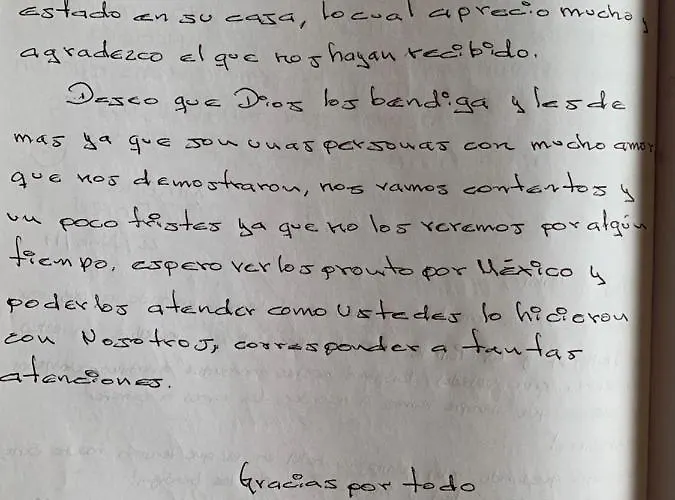 estado en su casa, lo cual aprecio mucho,
agradezco el que nos hayan recibido.
Deseo que Dios los bendiga y les de
mas ya que son unas personas con mucho amor
que nos demostraron, nos vamos contentos y
un poco tristes ya que no los veremos por algún
tiempo, espero verlos pronto por México y
poderlos atender como Ustedes lo hicieron
con Nosotros, corresponder a tantas
atenciones.
Gracias por todo